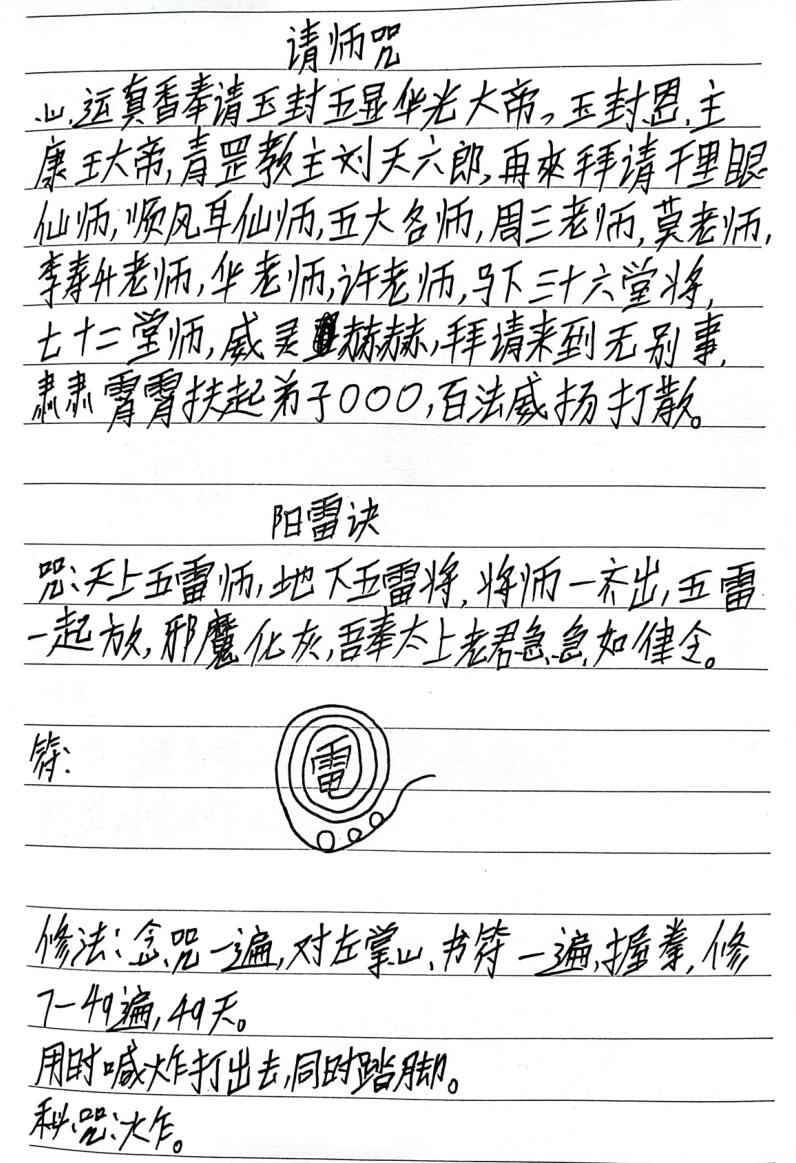 请师咒
心运真香奉请玉封五显华光大帝,玉封恩主
康王大帝,青罡教主刘天六郎,再來拜请千里眼
仙师,顺风耳仙师,五大名师,周三老师,莫老师,
李春升老师,华老师,许老师,马下三十六堂将,
七十二堂师,威灵赫赫,拜请来到无别事,
肃肃霄霄扶起弟子000,百法威扬打散。
阳雷诀
咒:天上五雷师,地下五雷将,将师一齐出,五雷
一起放,邪魔化灰,吾奉太上老君急急如律令。
符:
電
修法:念咒一遍,对左掌心书符一遍,握拳,修
7-49遍,49天。
用时喊炸打出去,同时踏脚。
秘咒:炸。